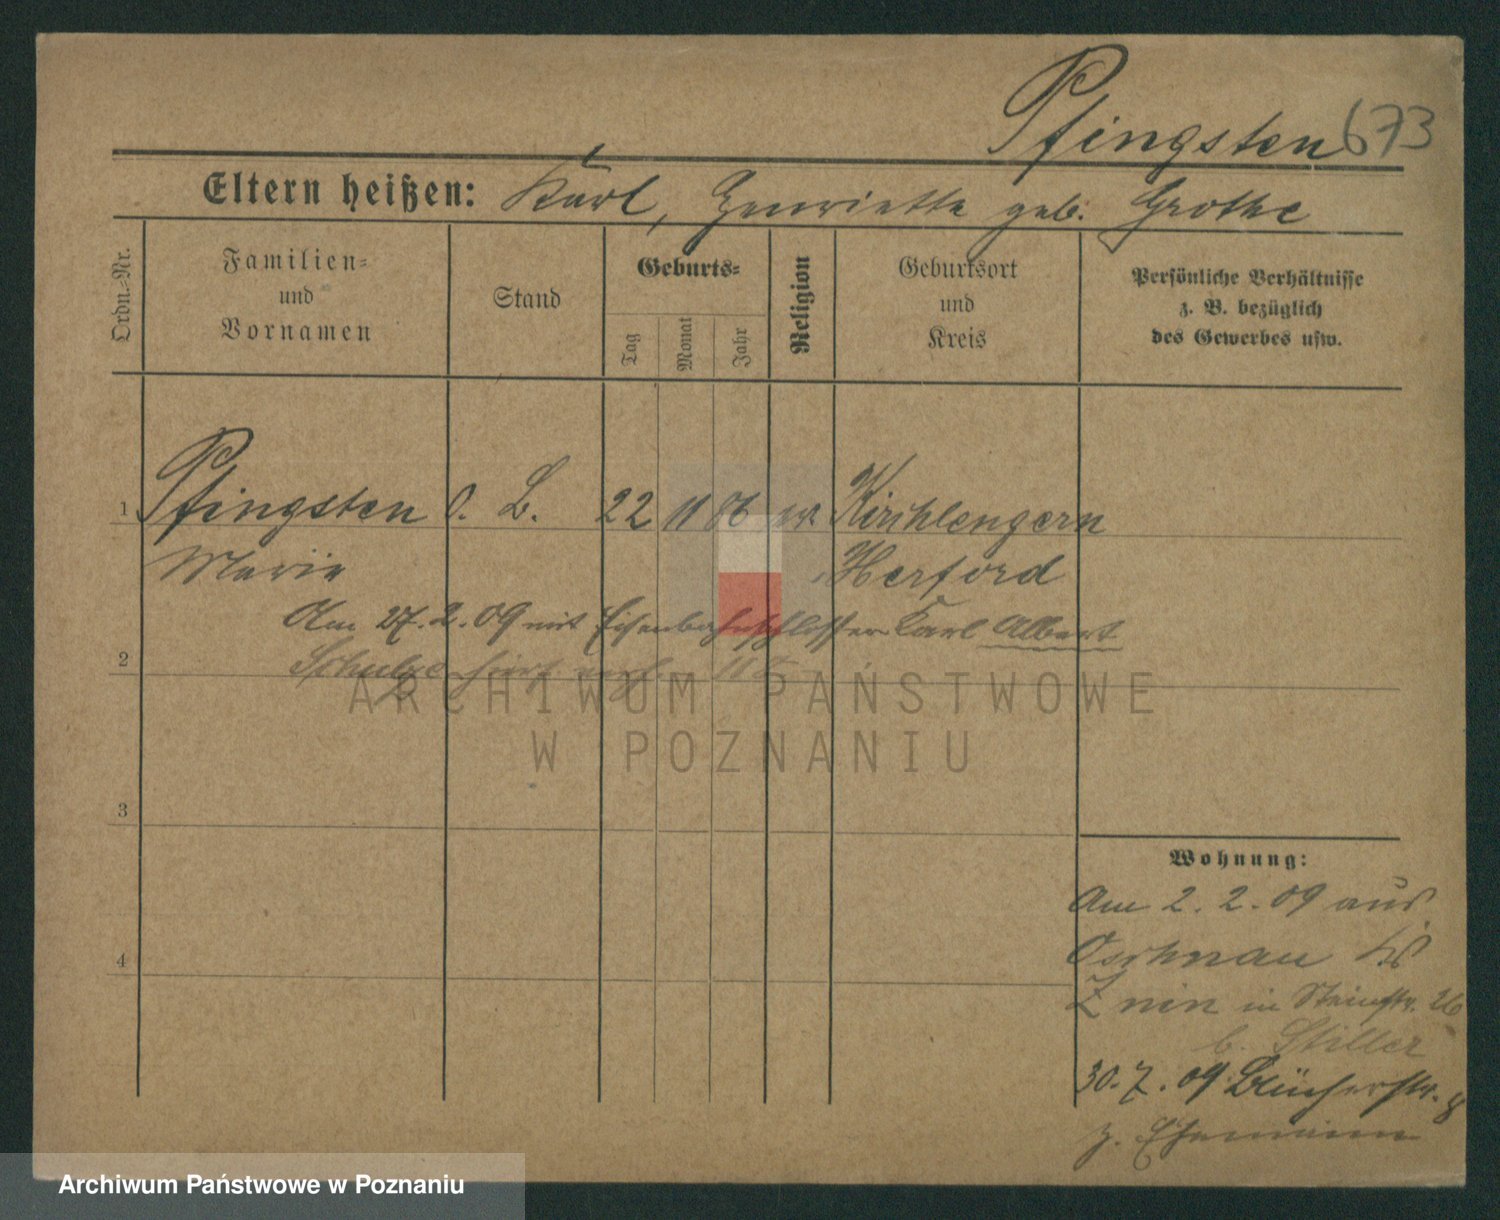 Pfingsten 673
Eltern heißen: Karl, Henriette geb. Grothe
Ordn.-Nr.
Familien-
und
Vornamen
Stand
Geburts-
Tag
Monat
Jahr
Religion
Geburtsort
und
Kreis
Persönliche Verhältnisse
z. B. bezüglich
des Gewerbes usw.
1 Pfingsten O. B. 22 11 86 ev. Kirchlengern
Marie Herford
Am 27.2.09 mit Eisenbahnschlosser Karl Albert
2 Schulze hier verh.
ARCHIWUM PAŃSTWOWE
W POZNANIU
3
4
Wohnung:
Am 2.2.09 aus
Oschnau Krs
Znin in Steinstr. 26
b. Stiller
30.7.09 Blücherstr. 8
z. Ehemann
Archiwum Państwowe w Poznaniu